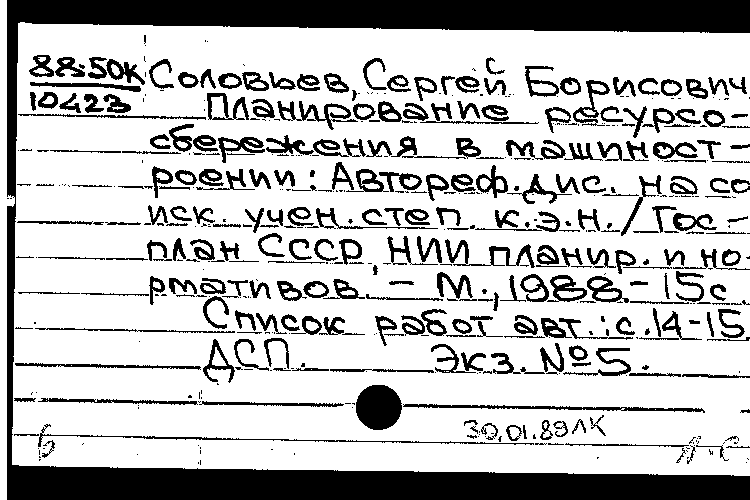 88-50К Соловьев, Сергей Борисович
10423 Планирование ресурсо-
сбережения в машиност-
роении: Автореф. дис. на со
иск. учен. степ. к.э.н. / Гос-
план СССР, НИИ планир. и но-
рмативов. - М., 1988. - 15с.
Список работ авт.: с.14-15.
ДСП. Экз. №5.
30.01.89ЛК
б